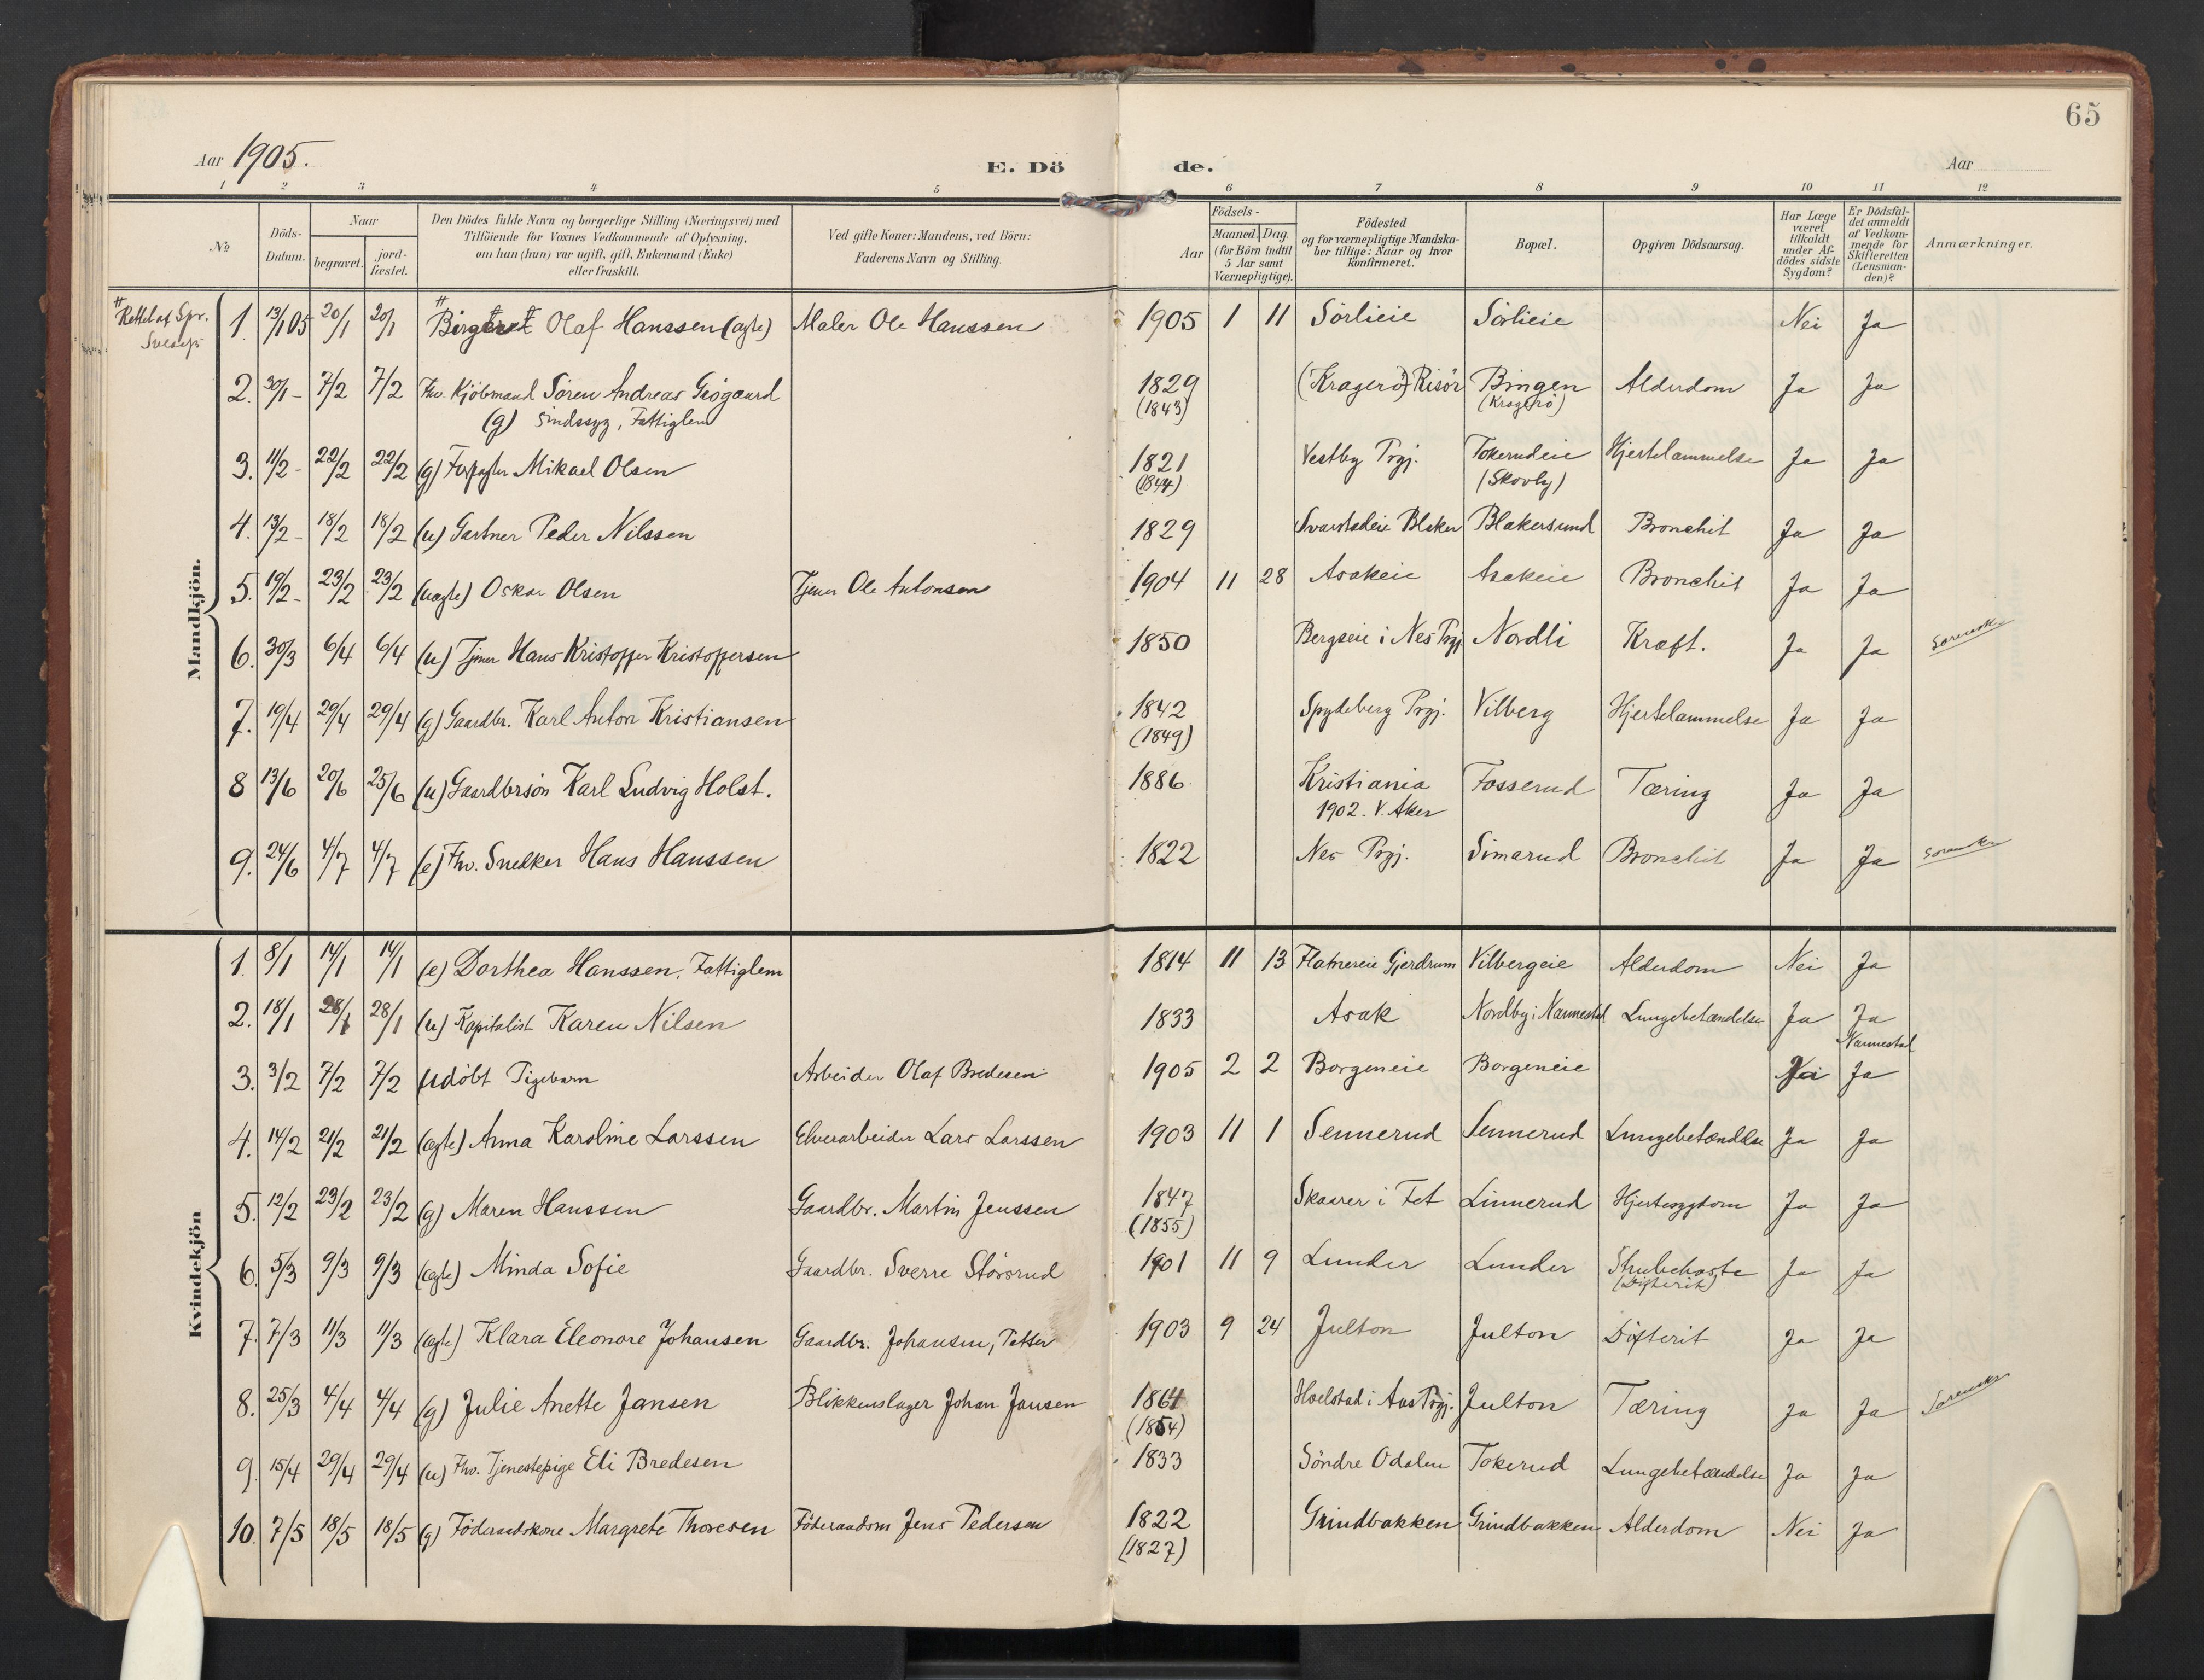 65
Aar 1905. E. Dö de. Aar
1 2 3 4 5 6 7 8 9 10 11 12
№ Döds-Datum. Naar begravet. jordfæstet. Den Dödes fulde Navn og borgerlige Stilling (Næringsvei) med Tilföiende for Voxnes Vedkommende af Oplysning, om han (hun) var ugift, gift, Enkemand (Enke) eller fraskilt. Ved gifte Koner: Mandens, ved Börn: Faderens Navn og Stilling. Födsels- Aar Maaned. Dag. (for Börn indtil 5 Aar samt Værnepligtige). Födested og for værnepligtige Mandskaber tillige: Naar og hvor konfirmeret. Bopæl. Opgiven Dödsaarsag. Har Læge været tilkaldt under Afdödes sidste Sygdom? Er Dödsfaldet anmeldt af Vedkommende for Skifteretten (Lensmanden)? Anmærkninger.
Mandkjön.
# Rettet af Spr.
1. 13/1 05 20/1 20/1 # Olaf Hanssen (ægte) Maler Ole Hanssen 1905 1 11 Sörlieie Sörlieie Nei Ja
2. 30/1 - 7/2 7/2 Fhv. Kjöbmand Sören Andreas 1829 (Kragerö) Risör Bingen Alderdom Ja Ja
(g) Sindssyg, Fattiglem (1843) (Kragerö)
3. 11/2 - 22/2 22/2 (g) Forpagter Mikael Olsen 1821 Vestby Prgj. Tokerudeie Hjertelammelse Ja Ja
(1844) (Skovly)
4. 13/2 - 18/2 18/2 (u) Gartner Peder Nilssen 1829 Svarstadeie Blaker Blakersund Bronchit Ja Ja
5. 19/2 - 23/2 23/2 (uægte) Oskar Olsen Tjener Ole Antonsen 1904 11 28 Asakeie Asakeie Bronchit Ja Ja
6. 30/3 6/4 6/4 (u) Tjener Hans Kristoffer Kristoffersen 1850 Bergseie i Nes Prgj Nordli Kræft. Ja Ja
7. 19/4 29/4 29/4 (g) Gaardbr. Karl Anton Kristiansen 1842 Spydeberg Prgj. Vilberg Hjertelammelse Ja Ja
(1849)
8 13/6 20/6 25/6 (u) Gaardbrsön Karl Ludvig Holst. 1886 Kristiania Fosserud Tæring Ja Ja
1902. V. Aker
9. 24/6 4/7 4/7 (e) Fhv. Snedker Hans Hanssen 1822 Nes Prgj. Simarud Bronchit Ja Ja
Kvindekjön
1. 8/1 14/1 14/1 (e) Dorthea Hanssen, Fattiglem 1814 11 13 Flatnereie Gjerdrum Vilbergeie Alderdom Nei Ja
2. 18/1 28/1 28/1 (u) Kapitalist Karen Nilsen 1833 Asak Nordby i Nannestad Lungebetændelse Ja Ja
Nannestad
3. 3/2 7/2 7/2 udöbt Pigebarn Arbeider Olaf Bredesen 1905 2 2 Borgeneie Borgeneie Nei Ja
4. 14/2 21/2 21/2 (ægte) Anna Karoline Larssen Elverarbeider Lars Larssen 1903 11 1 Sennerud Sennerud Lungebetændelse Ja Ja
5. 12/2 23/2 23/2 (g) Maren Hanssen Gaardbr. Martin Jenssen 1847 Skaarer i Fet Linnerud Hjertesygdom Ja Ja
(1855)
6. 5/3 9/3 9/3 (ægte) Minda Sofie Gaardbr. Sverre Störsrud 1901 11 9 Lunder Lunder Strubehoste Ja Ja
(Difterit)
7. 7/3 11/3 11/3 (ægte) Klara Eleonore Johansen Gaardbr. Johansen, Petter 1903 9 24 Julton Julton Difterit Ja Ja
8. 25/3 4/4 4/4 (g) Julie Anette Jansen Blikkenslager Johan Jansen 1861 Holstad i Aas Prgj. Julton Tæring Ja Ja
(1854)
9. 15/4 29/4 29/4 (u) Fhv. Tjenestepige Eli Bredesen 1833 Söndre Odalen Tokerud Lungebetændelse Ja Ja
10. 7/5 18/5 18/5 (g) Föderaadskone Margrete Thoresen Föderaadsm Jens Pedersen 1822 Grindbakken Grindbakken Alderdom Nei Ja
(1827)